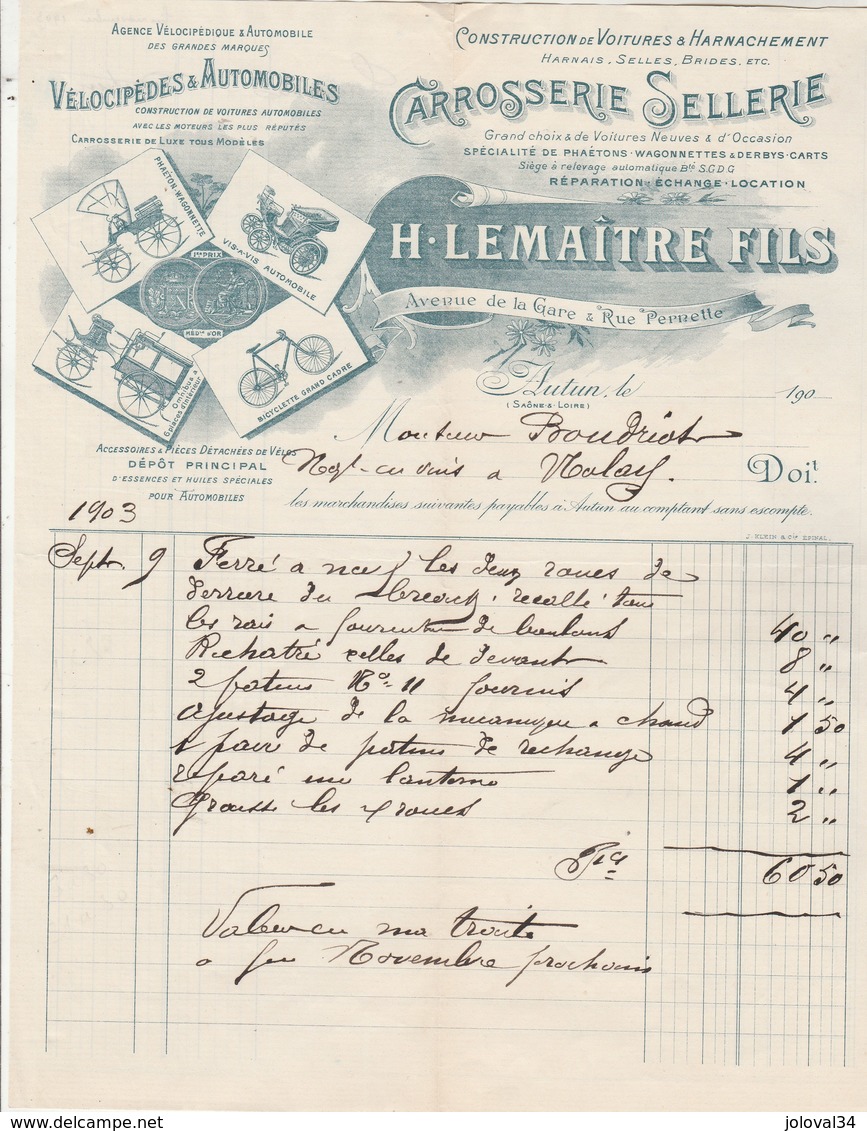 AGENCE VÉLOCIPÉDIQUE & AUTOMOBILE
DES GRANDES MARQUES
VÉLOCIPÈDES & AUTOMOBILES
CONSTRUCTION DE VOITURES AUTOMOBILES
AVEC LES MOTEURS LES PLUS RÉPUTÉS
CARROSSERIE DE LUXE TOUS MODÈLES
CONSTRUCTION DE VOITURES & HARNACHEMENT
HARNAIS, SELLES, BRIDES, ETC.
CARROSSERIE SELLERIE
Grand choix & de Voitures Neuves & d'Occasion
SPÉCIALITÉ DE PHAÉTONS-WAGONNETTES & DERBYS-CARTS
Siège à relevage automatique Bté S.G.D.G
RÉPARATION-ÉCHANGE-LOCATION
PHAÉTON-WAGONNETTE
VIS-A-VIS AUTOMOBILE
1er PRIX
MÉDlle D'OR
Omnibus à
6 places d'intérieur
BICYCLETTE GRAND CADRE
H. LEMAÎTRE FILS
Avenue de la Gare & Rue Pernette
Autun, le 190
(SAÔNE & LOIRE)
Monsieur Boudriot
Negt en vins a Nolay.
Doit
ACCESSOIRES & PIÈCES DÉTACHÉES DE VÉLOS
DÉPÔT PRINCIPAL
D'ESSENCES ET HUILES SPÉCIALES
POUR AUTOMOBILES
les marchandises suivantes payables à Autun au comptant sans escompte.
1903
J. KLEIN & Cie EPINAL.
Septr. 9 Ferré a neuf les deux roues de
derriere du recallé tous
les rais a fourniture de boulons 40 "
Rechatré celles de devant 8 "
2 patins No 11 fournis 4 "
ajustage de la mecanique a chaud 1 50
1 paire de patins de rechange 4 "
reparé une lanterne 1 "
Graisse les 4 roues 2 "
60 50
Valeur en ma traite
a fin Novembre prochain
delcampe.net
joloval34